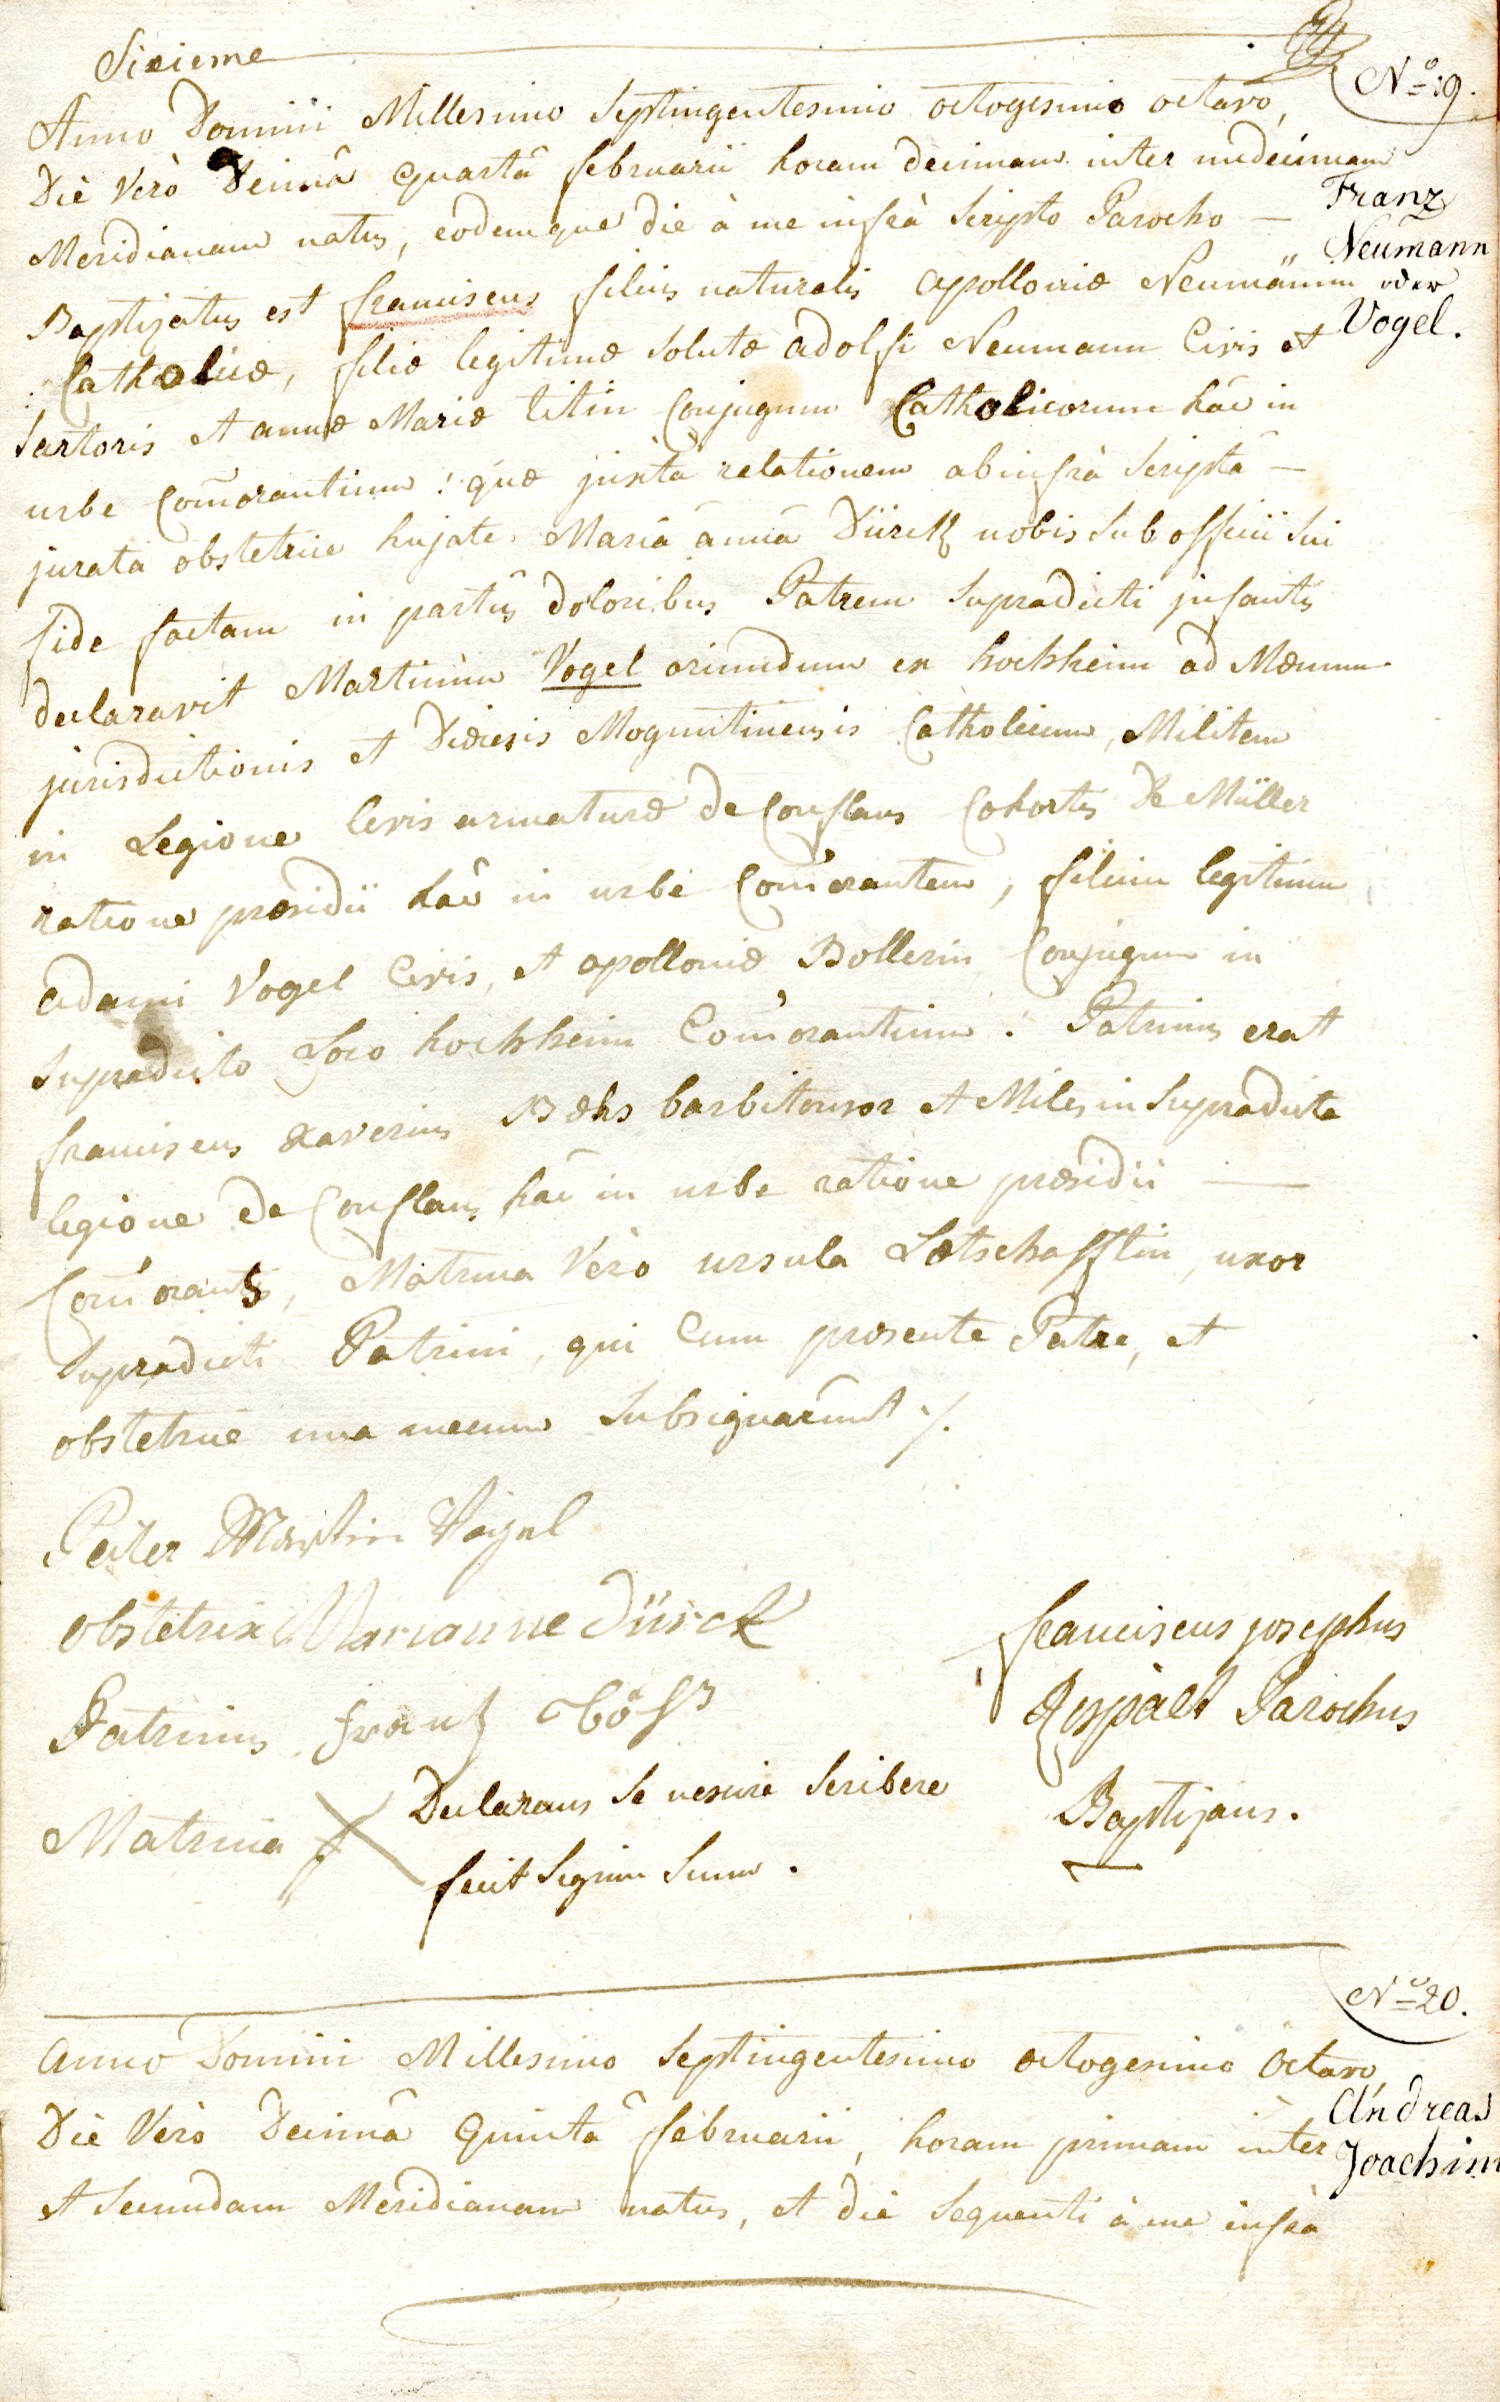 Sixieme
No 19.
Anno Domini Millesimo Septingentesimo octogesimo octavo,
Diè Verò Decimâ quartâ februarii horam decimam inter undecimam
Meridianam natus, eodemque die à me infrà Scripto Parocho —
Franz
Neumann
oder
Vogel.
Baptizatus est franciscus filius naturalis apolloniæ Neumännin
Catholicæ, filiæ legitimæ Solutæ adolfi Neumann Civis et
Sartoris et annæ Mariæ titin Conjugum Catholicorum hâc in
urbe Com̄orantium: quæ juxtà relationem ab infrà Scriptâ —
jurata obstetrice hujate Mariâ annâ Dürck nobis Sub officii Sui
fide factam in partûs doloribus Patrem Supradicti infantis
declaravit Martinum Vogel oriundum ex hochheim ad Mœnum
jurisdictionis et Diœcesis Moguntinensis Catholicum, Militem
in Legione levis armaturæ de Conflans Cohortis De Müller
ratione præsidii hâc in urbe Com̄orantem, filium legitimum
adami Vogel Civis, et apolloniæ Bollerin Conjugum in
Supradicto Loco hochheim Com̄orantium. Patrinus erat
franciscus Xaverius Bœhs barbitonsor et Miles in Supradicta
legione de Conflans hâc in urbe ratione præsidii —
Com̄orans, Matrina Verò ursula Lœtschafftin, uxor
Supradicti Patrini, qui Cum præsente Patre, et
obstetrice una mecum Subsignarunt ./.
Pater Martin Vogel
obstetrix Marianne Dürck
Patrinus frantz Böhs
Matrina
Declarans Se nescire Scribere
fecit Signum Suum.
franciscus josephus
Parochus
Baptizans.
No 20.
Anno Domini Millesimo Septingentesimo octogesimo octavo,
Diè Verò Decimâ Quintâ februarii, horam primam inter
Andreas
Joachim
et Secundam Meridianam natus, et die Sequenti à me infrà